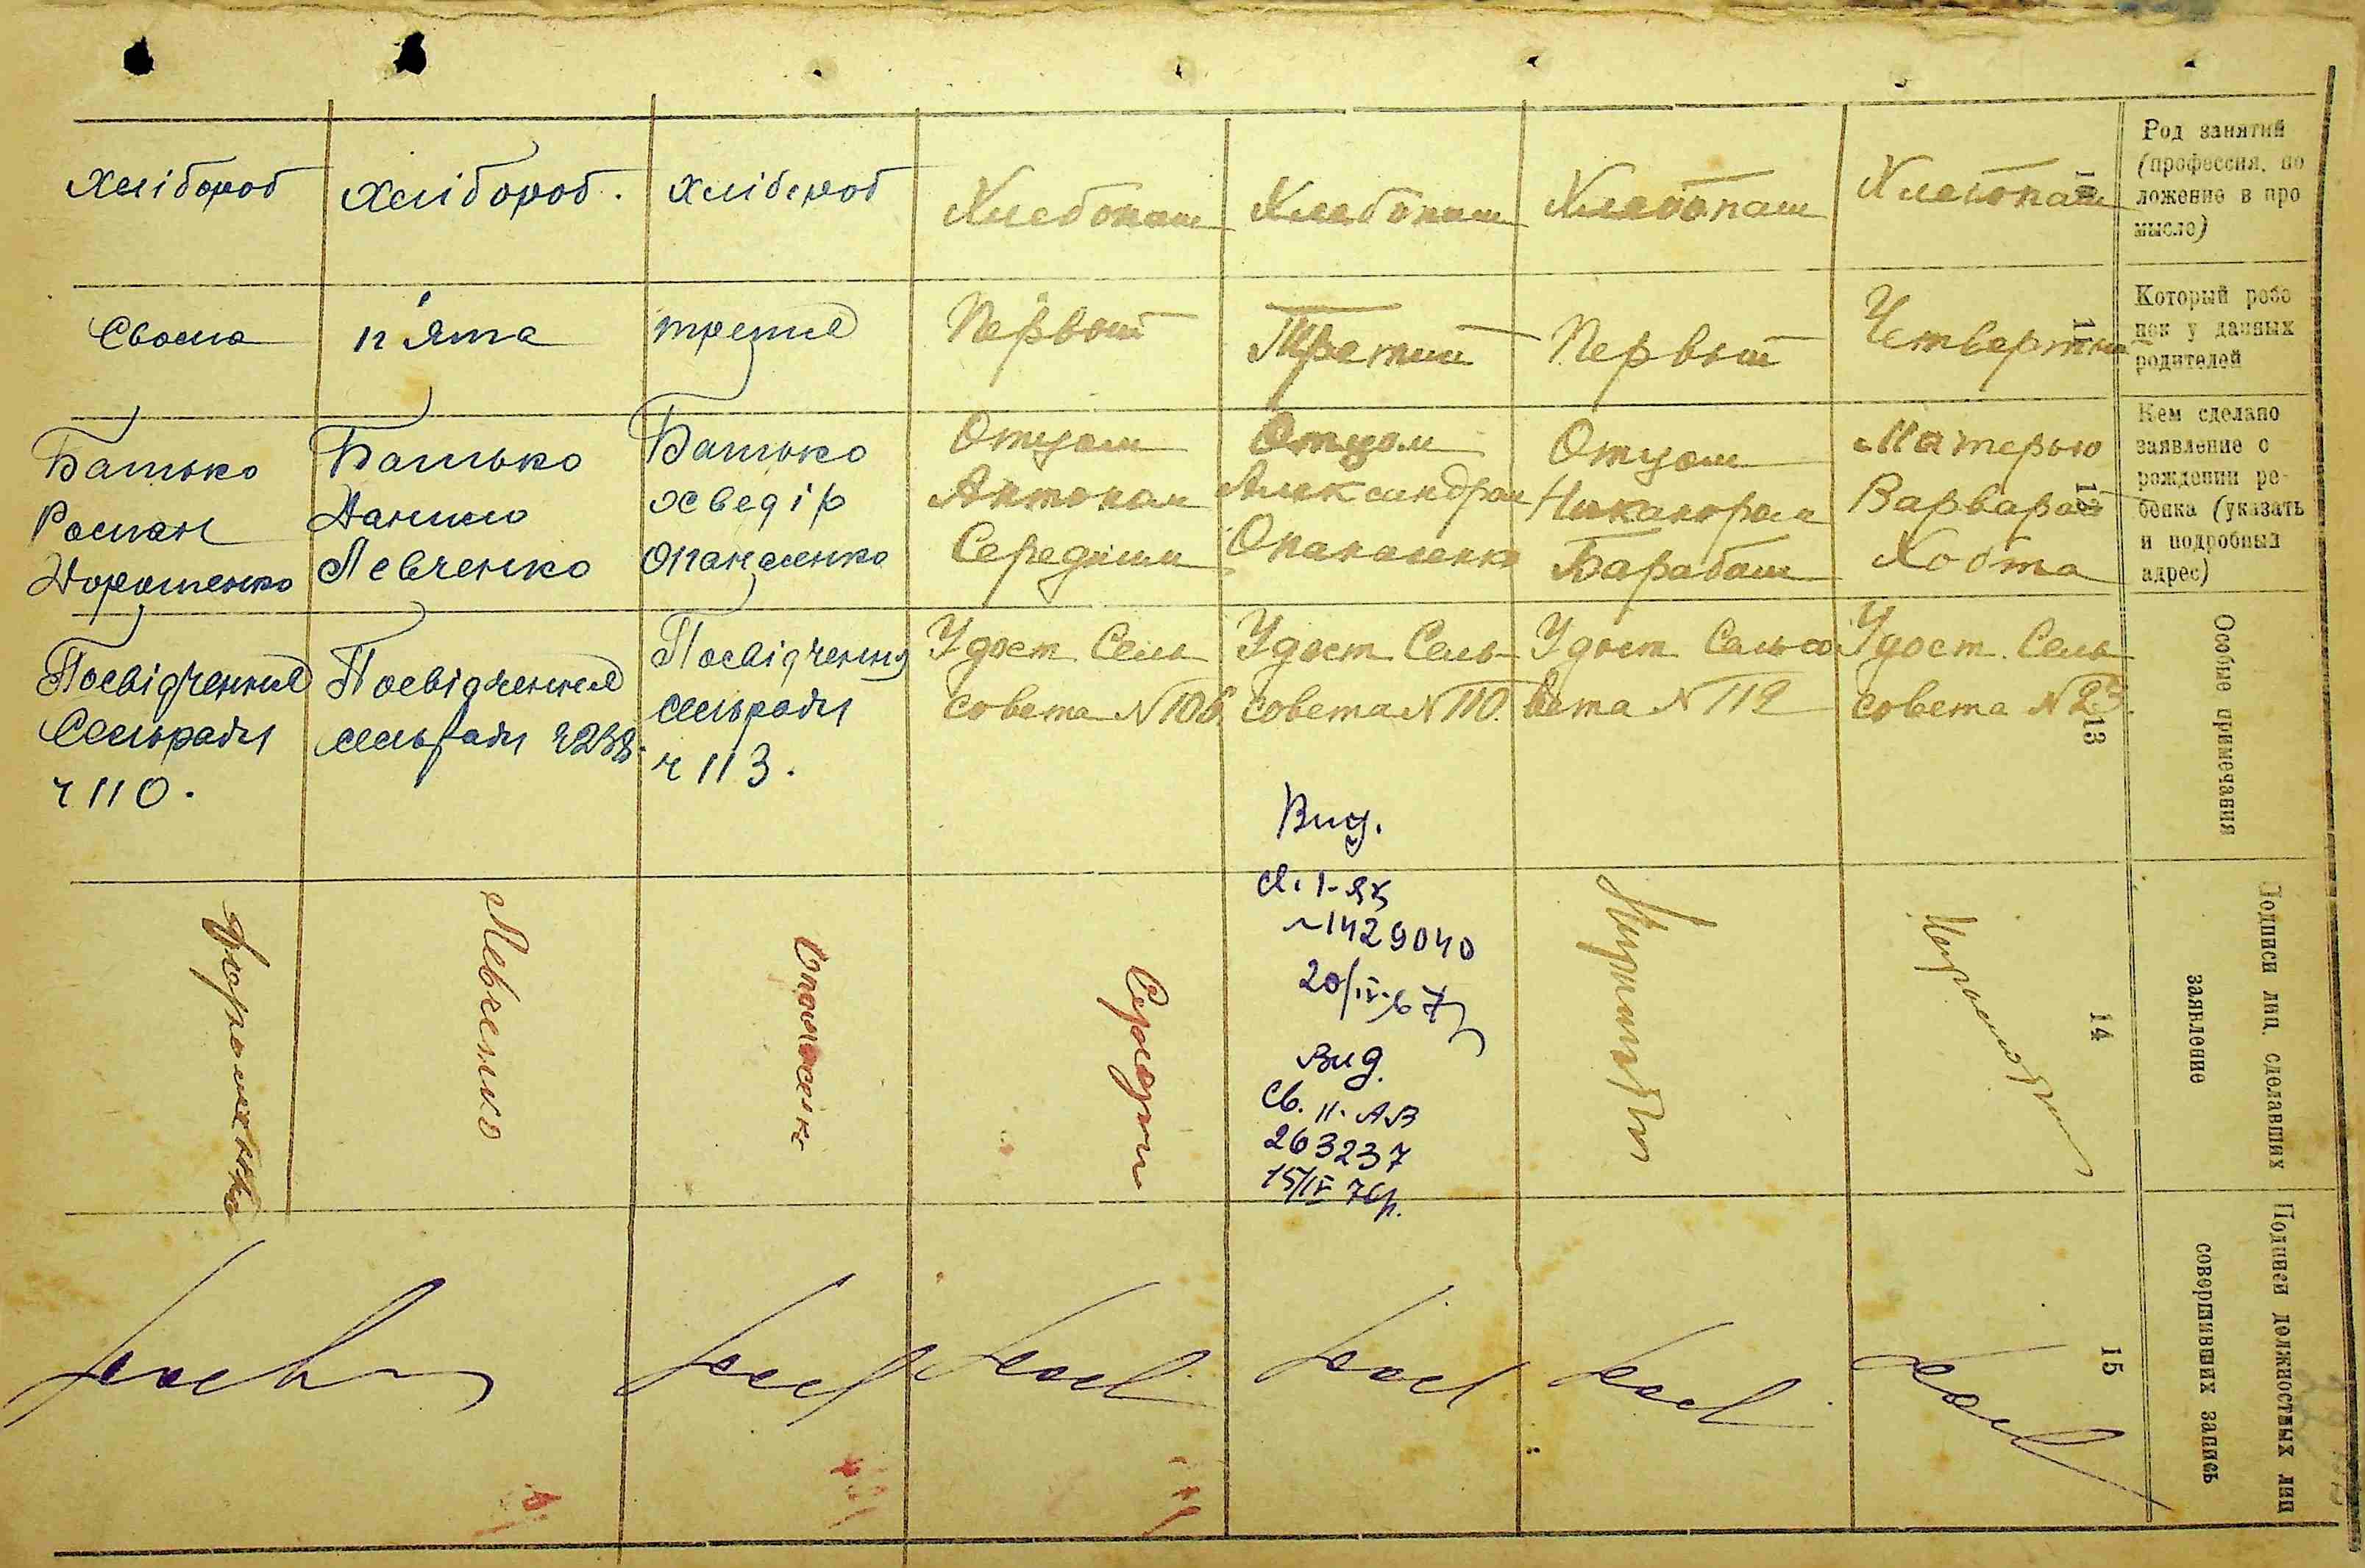 Хлібороб
Хлібороб.
Хлібороб
Хлебопаш
Хлебопаш
Хлебопаш
Хлебопаш
10
Род занятий
(профессия, по
ложение в про
мысле)
Сьома
п'ята
третя
Первый
Третий
Первый
Четвертый
11
Который ребе
нок у данных
родителей
Батько
Роман
Дорошенко
Батько
Данило
Левченко
Батько
Хведір
Опанасенко
Отцом
Антоном
Середины
Отцом
Александром
Опанасенко
Отцом
Никанором
Барабаш
Матерью
Варварой
Хобта
12
Кем сделано
заявление о
рождении ре-
бенка (указать
и подробный
адрес)
Посвідчення
Сельради
ч 110.
Посвідчення
сельради ч 238.
Посвідчення
сельради
ч 113.
Удост Сель
совета № 106
Удост Сель
совета № 110.
Удост Сельсо
вета № 112
Удост. Сель
совета № 23.
13
Особые примечания
Вид.
св. I-ЯБ
№1429040
20/IV-67
Вид.
Св. II-АВ
263237
15/IV 76р.
Дорошенко
Левченко
Опанасенк
Середин
14
Подписи лиц, сделавших
заявление
15
Подписи должностных лиц
совершивших запись